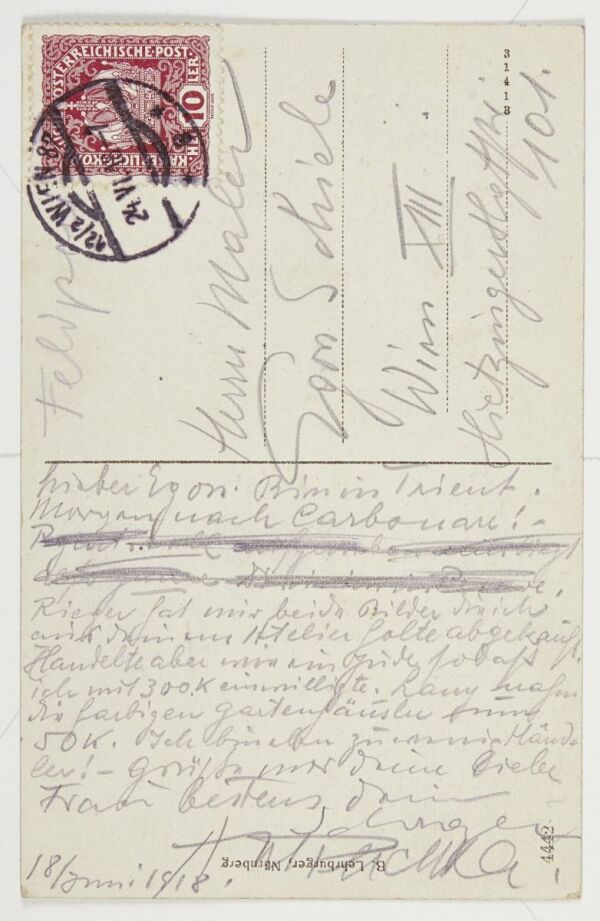 ÖSTERREICHISCHE·POST
10
HELLER
12/2 WIEN 88
24 VI
Feldp
31418
Herrn Maler
Egon Schiele
Wien XIII
Hietzinger Hptstr
101.
Lieber Egon. Bin in Trient.
Morgen nach Carbonare! –
Rieger hat mir beide Bilder die ich
aus deinem Atelier holte abgekauft.
Handelte aber wie ein Jude, sodaß
ich mit 300 K einwilligte. Lany nahm
die farbigen Gartenhäusln um
50 K. Ich bin eben zu wenig Händ-
ler! – Grüße mir deine liebe
Frau bestens dein
18/Juni 1918.
G. Lehrburger, Nürnberg
4442